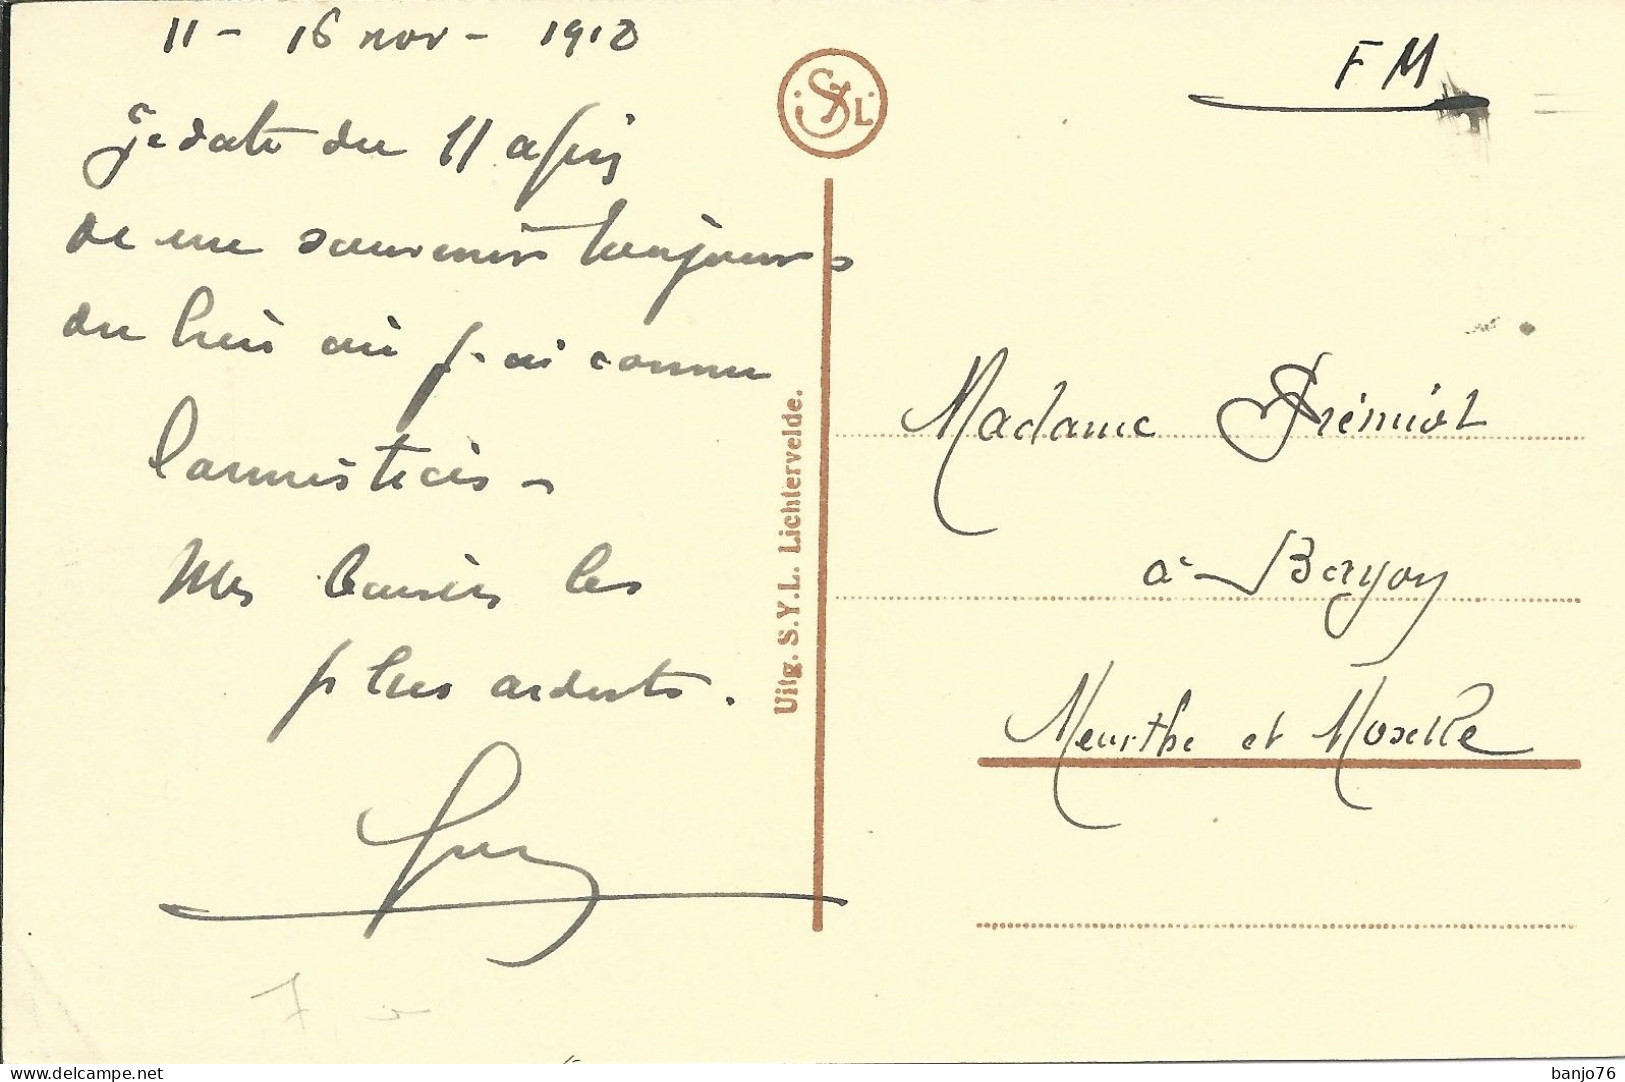 11 - 16 nov - 1918
Je date du 11 afin
de me souvenir toujours
du lieu où j'ai connu
l'armistice -
Mes baisers les
plus ardents.
S.Y.L.
Uitg. S.Y.L. Lichtervelde.
F M
Madame Frémiot
à Bayon
Meurthe et Moselle
banjo76